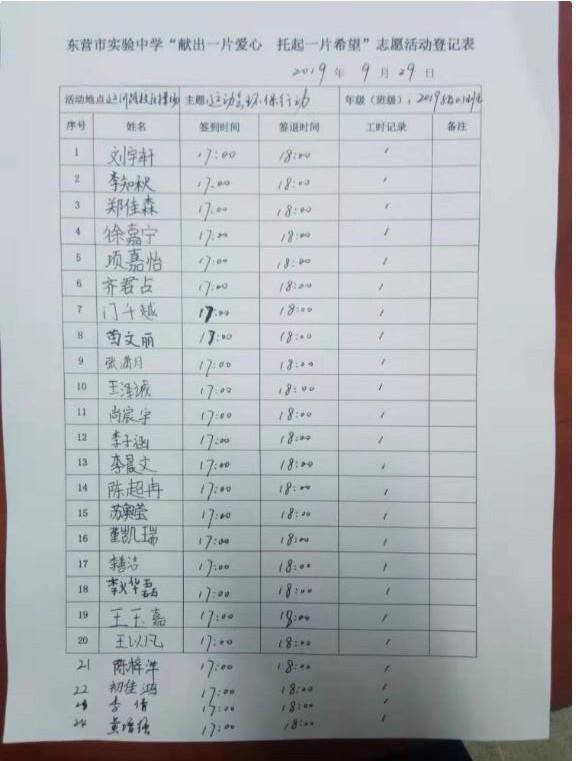 东营市实验中学“献出一片爱心 托起一片希望”志愿活动登记表
2019年9月29日
活动地点: 主题:运动会环保行动 年级(班级):2019级
序号 姓名 签到时间 签退时间 工时记录 备注
1 刘宇轩 17:00 18:00 1
2 李知秋 17:00 18:00 1
3 郑佳森 17:00 18:00 1
4 徐嘉宁 17:00 18:00 1
5 项嘉怡 17:00 18:00 1
6 齐君占 17:00 18:00 1
7 门千越 17:00 18:00 1
8 苗文丽 17:00 18:00 1
9 张潇月 17:00 18:00 1
10 王泽诚 17:00 18:00 1
11 尚宸宇 17:00 18:00 1
12 李子涵 17:00 18:00 1
13 李晨文 17:00 18:00 1
14 陈超冉 17:00 18:00 1
15 苏奥莹 17:00 18:00 1
16 董凯瑞 17:00 18:00 1
17 17:00 18:00 1
18 17:00 18:00 1
19 王玉嘉 17:00 18:00 1
20 王以凡 17:00 18:00 1
21 陈梓洋 17:00 18:00 1
22 初佳鸿 17:00 18:00 1
23 李倩 17:00 18:00 1
24 17:00 18:00 1